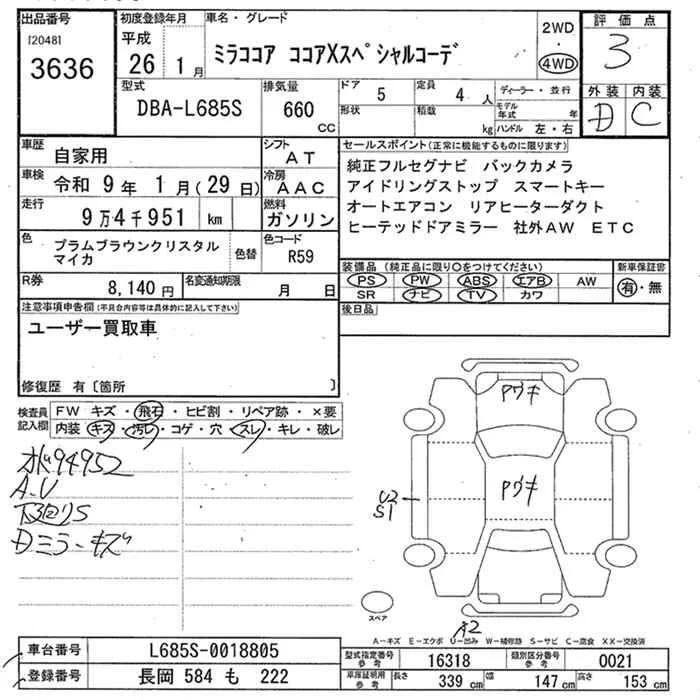 出品番号
[2048]
3636
初度登録年月
平成
26 1月
車名・グレード
ミラココア ココアXスペシャルコーデ
2WD
4WD
評価点
3
外装 内装
D C
型式
DBA-L685S
排気量
660
CC
ドア
5
形状
定員
4 人
積載
kg
ディーラー・並行
モデル年式 年
ハンドル 左・右
車歴
自家用
シフト
AT
車検
令和 9年 1月(29日)
冷房
AAC
走行
9万4千951 km
燃料
ガソリン
色
プラムブラウンクリスタル
マイカ
色替
色コード
R59
R券
8,140円
名変通知期限
月 日
セールスポイント(正常に機能するものに限ります)
純正フルセグナビ バックカメラ
アイドリングストップ スマートキー
オートエアコン リアヒーターダクト
ヒーテッドドアミラー 社外AW ETC
装備品(純正品に限り○をつけてください)
PS PW ABS エアB AW
SR ナビ TV カワ
新車保証書
有・無
後日品
注意事項申告欄(不具合内容等は具体的に記入して下さい)
ユーザー買取車
修復歴 有〔箇所 〕
検査員
記入欄
FW キズ・飛石・ヒビ割・リペア跡・×要
内装 キズ・汚レ・コゲ・穴・スレ・キレ・破レ
94952
A-U
下回りS
Dミラーキズ
Pウキ
Pウキ
U2
S1
スペア
A2
A-キズ E-エクボ U-凹み W-補修跡 S-サビ C-腐食 XX-交換済
車台番号
L685S-0018805
登録番号
長岡 584 も 222
型式指定番号
参考
16318
類別区分番号
参考
0021
車庫証明用
参考
長さ
339 cm
幅
147 cm
高さ
153 cm